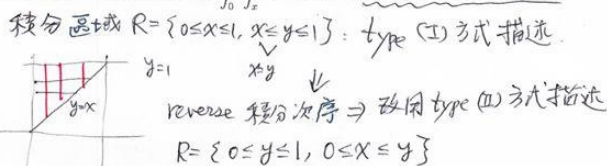 積分區域 R={0≤x≤1, x≤y≤1}: type (I) 方式描述.
y=1 x=y
y=x
reverse 積分次序 ⇒ 改用 type (II) 方式描述
R={0≤y≤1, 0≤x≤y}